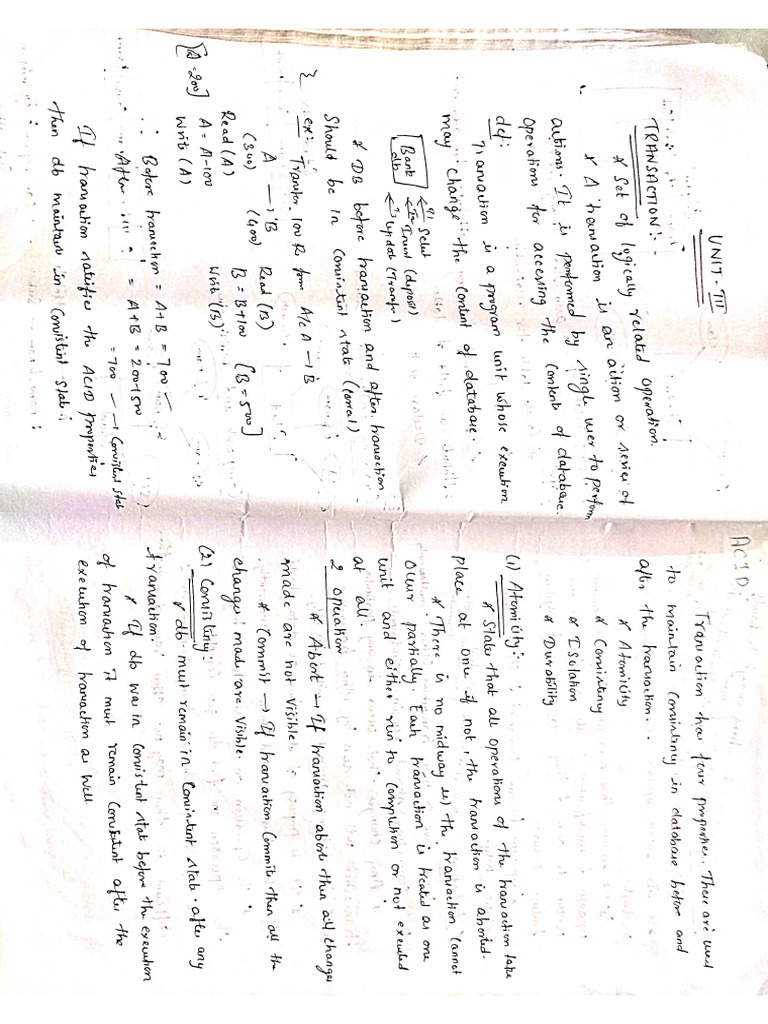 UNIT-III
TRANSACTION:-
* Set of logically related operation.
* A transaction is an action or series of
actions. It is performed by single user to perform
operations for accessing the contents of database.
def:
Transaction is a program unit whose execution
may change the content of database.
Bank
db
(1) Select
(2) Insert (deposit)
(3) Update (Transfer)
* DB before transaction and after transaction
Should be in Consistent state (correct)
ex: Transfer 100 Rs from A/c A → B
A → B
(300) (400)
Read (A) Read (B)
A = A-100 B = B+100
Write (A) Write (B)
[A=200] [B=500]
Before transaction = A+B = 700
After " " = A+B = 200+500
= 700 → Consistent state
If transaction satisfies the ACID properties
then db maintain in Consistent state
ACID:
Transaction has four properties. These are used
to maintain Consistency in database before and
after the transaction.
* Atomicity
* Consistency
* Isolation
* Durability
(1) Atomicity:
* State that all operations of the transaction take
place at once if not, the transaction is aborted.
* There is no midway the transaction cannot
occur partially. Each transaction is treated as one
unit and either run to completion or not executed
at all.
2 operation
* Abort → If transaction aborts then all changes
made are not visible.
* Commit → If transaction Commits then all the
changes made are visible.
(2) Consistency:
* db must remain in Consistent state after any
transaction.
* If db was in Consistent state before the execution
of transaction it must remain Consistent after the
execution of transaction as well.